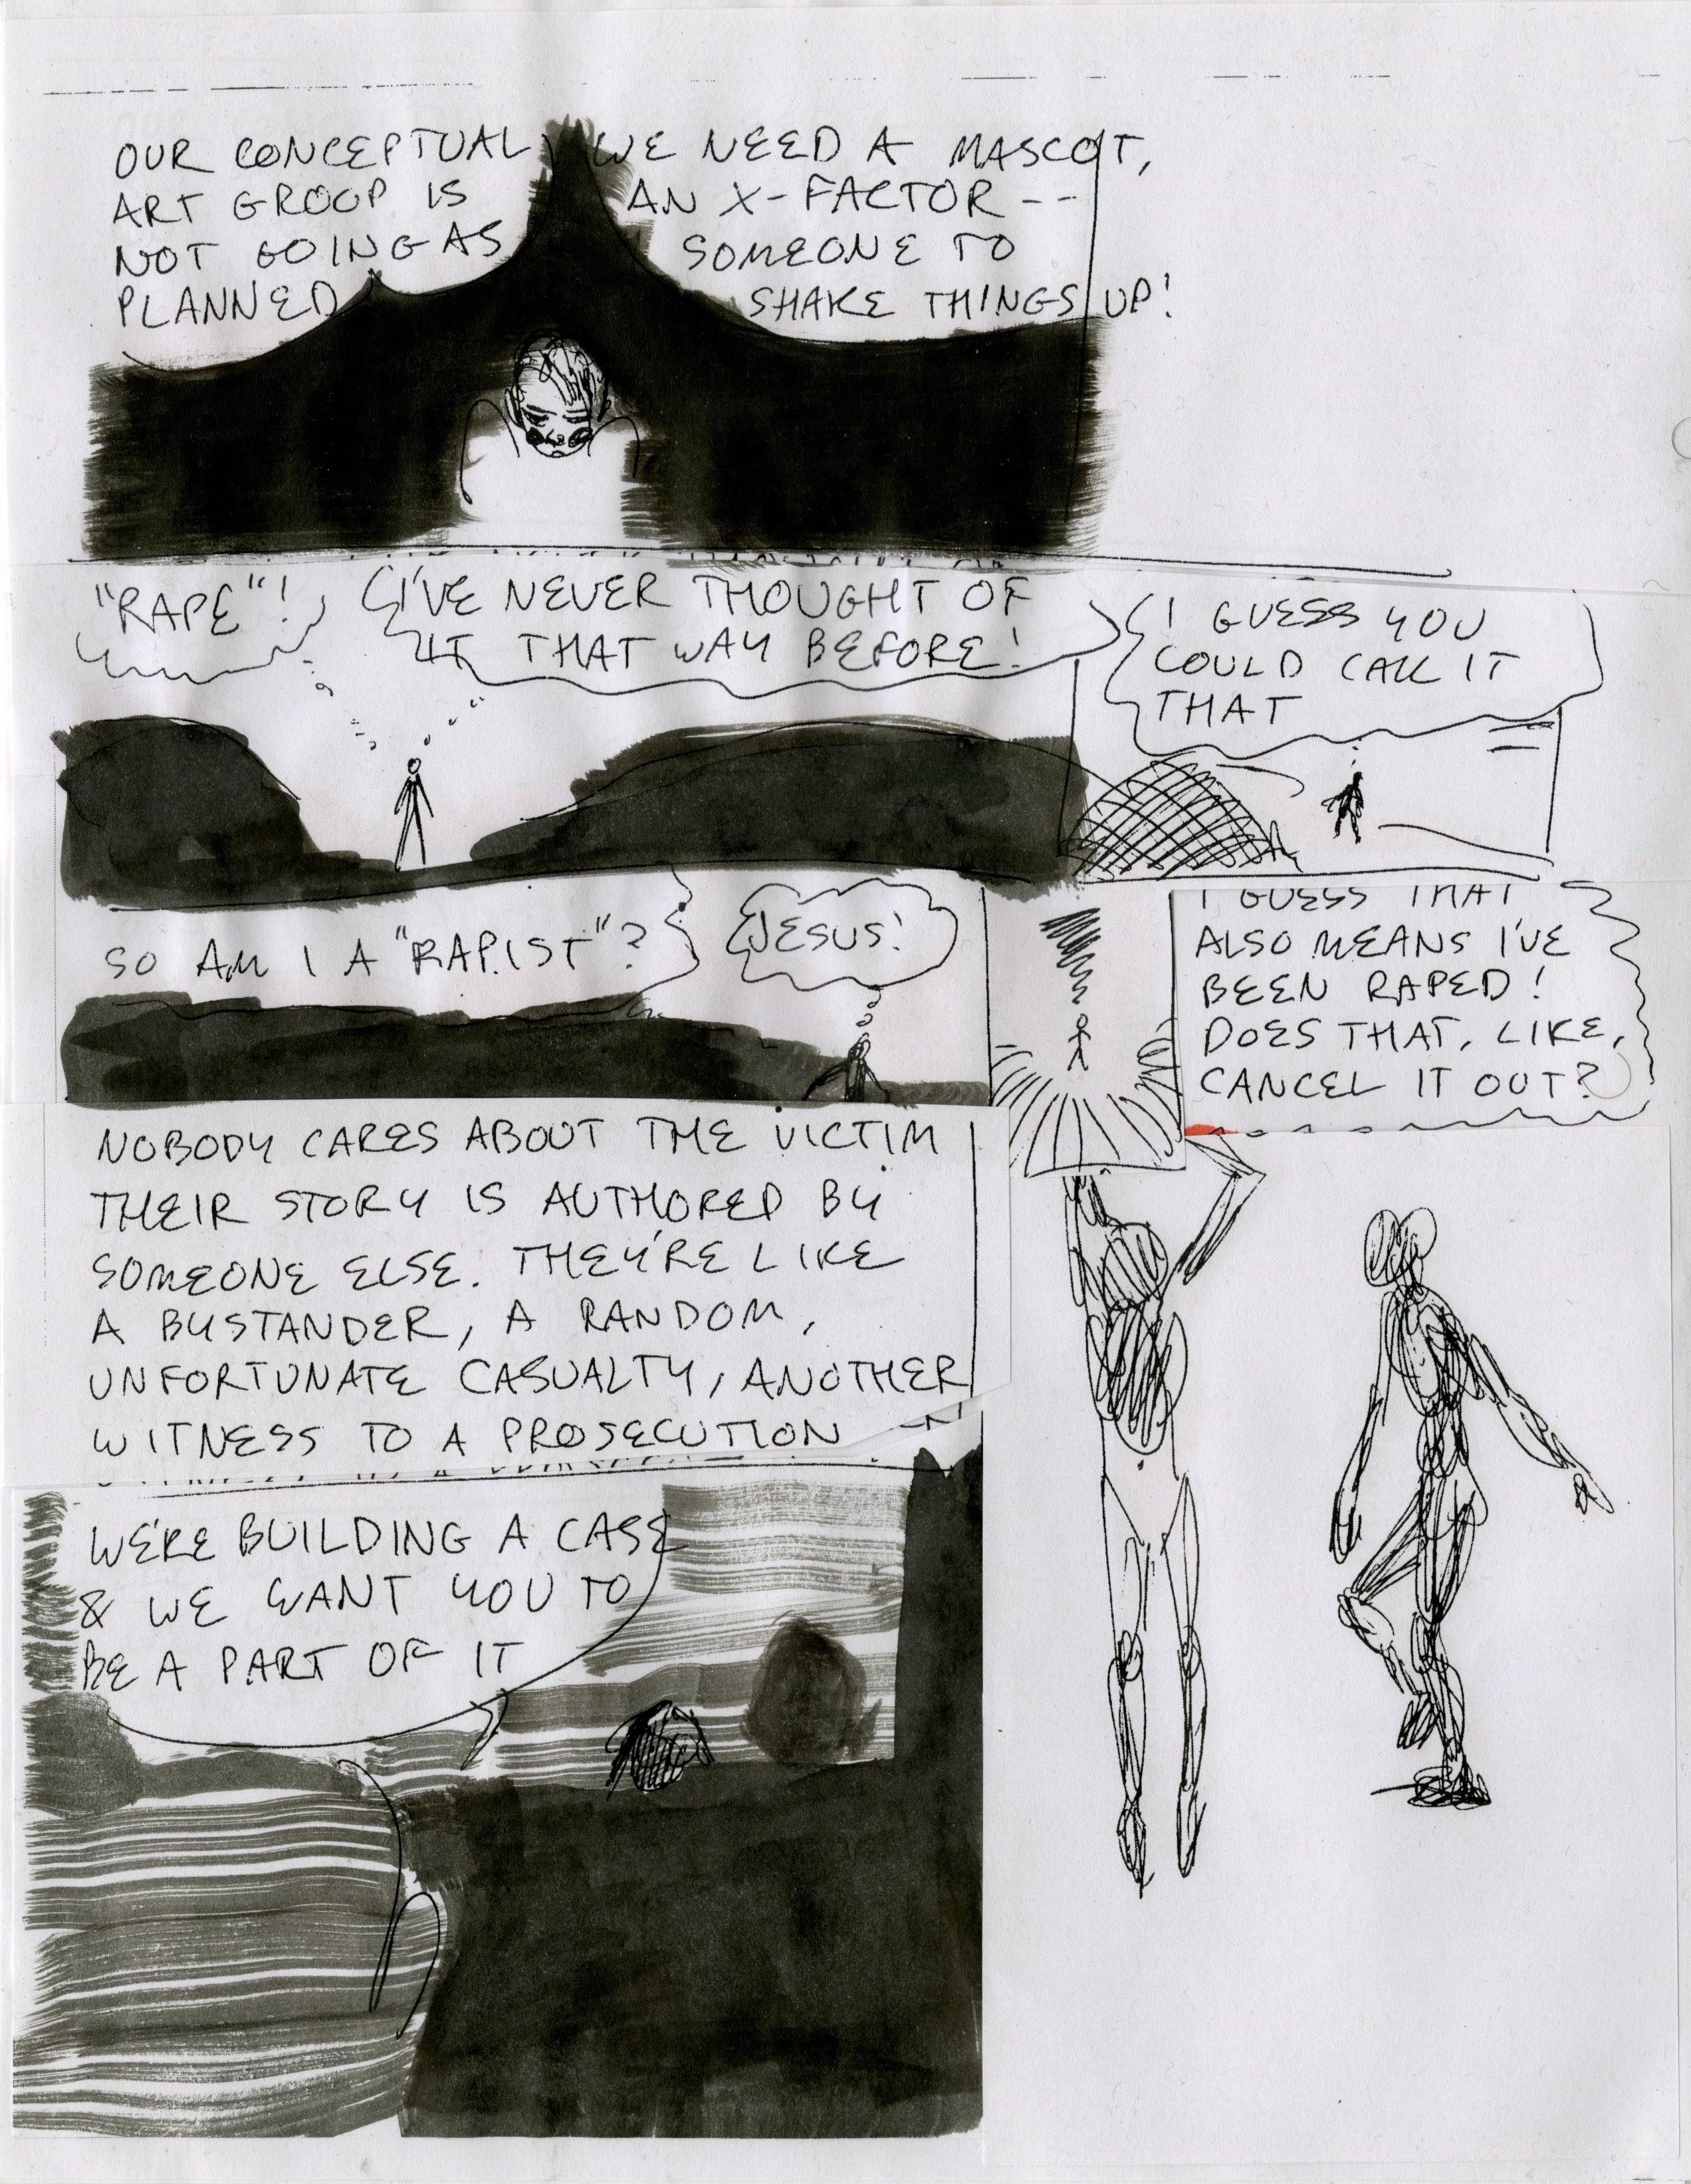 OUR CONCEPTUAL
ART GROUP IS
NOT GOING AS
PLANNED
WE NEED A MASCOT,
AN X-FACTOR--
SOMEONE TO
SHAKE THINGS UP!
"RAPE"!
I'VE NEVER THOUGHT OF
IT THAT WAY BEFORE!
I GUESS YOU
COULD CALL IT
THAT
SO AM I A "RAPIST"?
JESUS!
I GUESS THAT
ALSO MEANS I'VE
BEEN RAPED!
DOES THAT, LIKE,
CANCEL IT OUT?
NOBODY CARES ABOUT THE VICTIM
THEIR STORY IS AUTHORED BY
SOMEONE ELSE. THEY'RE LIKE
A BYSTANDER, A RANDOM,
UNFORTUNATE CASUALTY, ANOTHER
WITNESS TO A PROSECUTION
WE'RE BUILDING A CASE
& WE WANT YOU TO
BE A PART OF IT